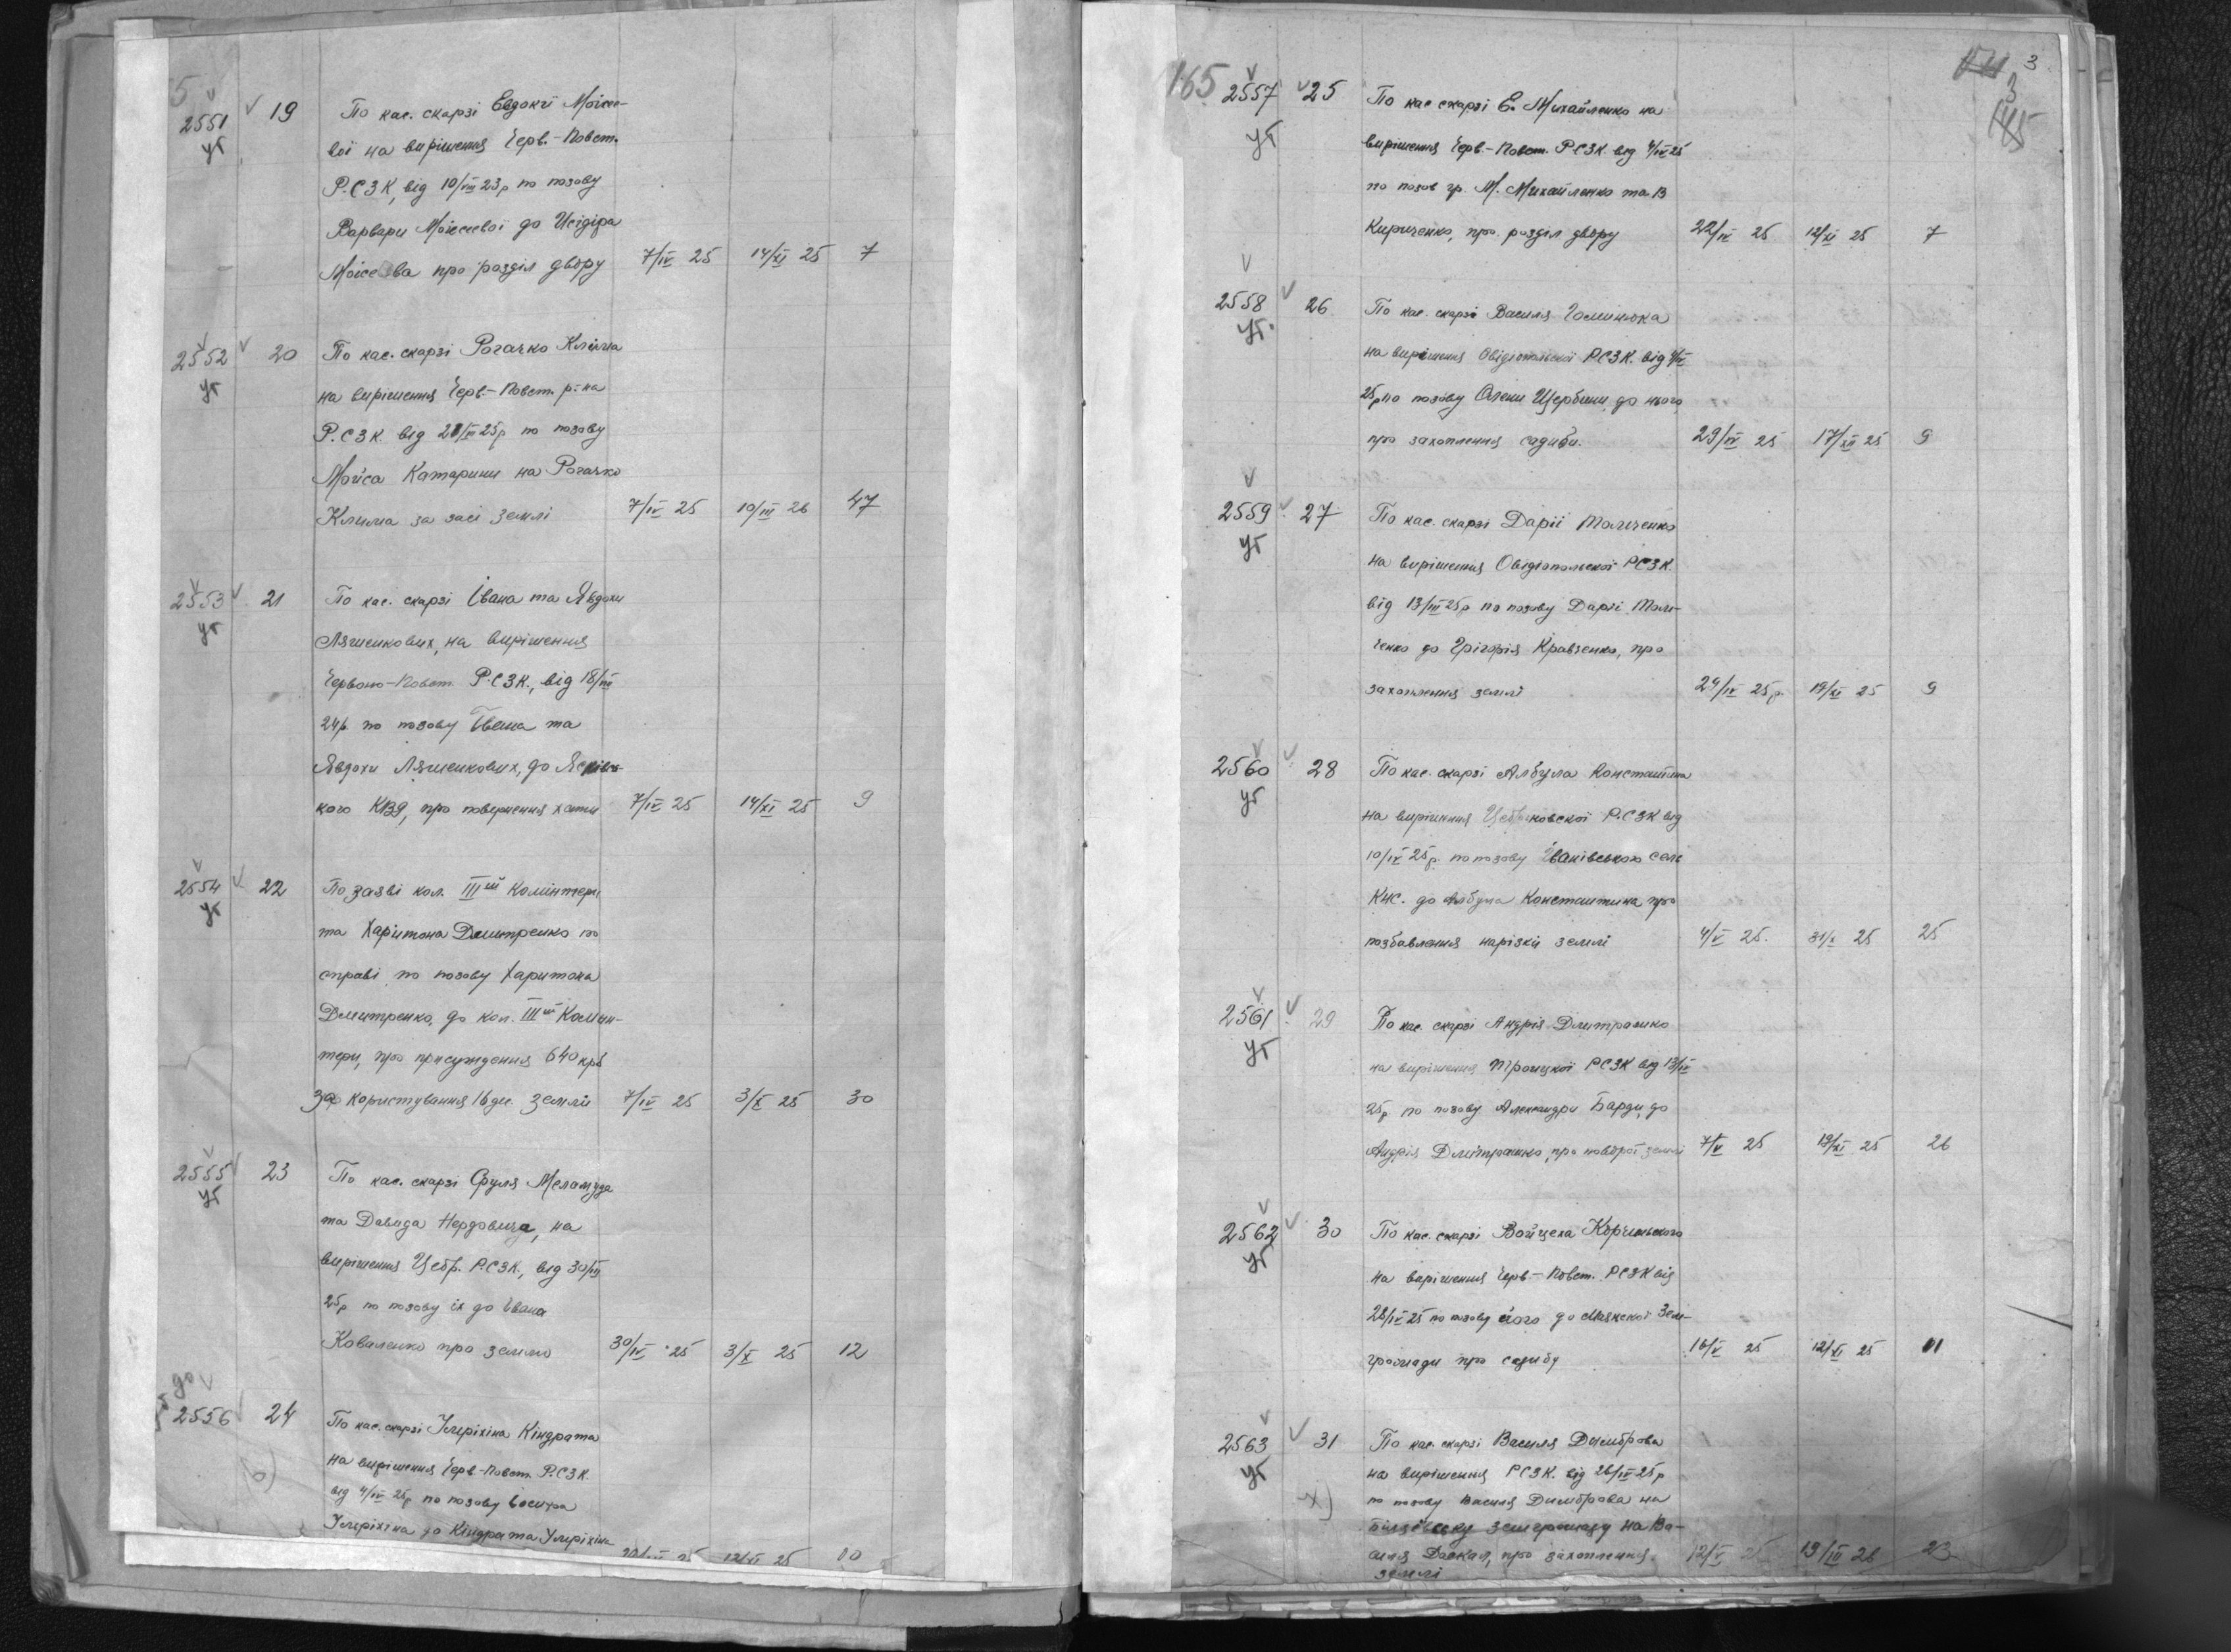 5
2551 19 По кас. скарзі Евдокії Моісее-
уг вої на вирішення Черв.-Повст.
Р.СЗК, від 10/VIII 23р по позову
Варвари Моісеевої до Исідіра
Моісеева про розділ двору 7/IV 25 14/XI 25 7
2552 20 По кас. скарзі Рогачко Кліма
уг на вирішення Черв.-Повст. р-на
Р.СЗК. від по позову
Мойса Катарини на Рогачко
Клима за засі землі 7/IV 25 10/III 26 47
2553 21 По кас. скарзі Івана та Явдохи
уг Ляшенкових, на вирішення
Червоно-Повст. Р.СЗК., від 18/VII
24р. по позову Івана та
Явдохи Ляшенкових, до
кого КВД, про повернення хати 7/IV 25 14/XI 25 9
2554 22 По заяві кол. IIIій Комінтерн
уг та Харитона Дмитренко по
справі по позову Харитона
Дмитренко, до кол. IIIій Комін-
терн, про присудження 640 крб
За користування 16 дес. землі 7/IV 25 3/X 25 30
2555 23 По кас. скарзі Фруля Меламуда
уг та Давида Нердовича, на
вирішення Цебр. Р.СЗК., від 30/III
25р по позову іх до Івана
Коваленко про землю 30/IV 25 3/X 25 12
до
2556 24 По кас. скарзі Умріхіна Кіндрата
на вирішення Черв-Повст. Р.СЗК.
від 4/IV 25р по позову
Умріхіна до Кіндрата Умріхіна
25 12/XI 25 10
3
3
165 2557 25 По кас скарзі Е. Михайленко на
уг вирішення Черв-Повст. РСЗК. від 4/IV 25
по позов гр. М. Михайленко та В
Кириченко, про розділ двору 22/IV 25 12/XI 25 7
2558 26 По кас. скарзі Василя Гоминюка
уг. на вирішення Овідіопольскої РСЗК. від 4/IV
25р по позову Олени Щербини, до нього,
про захоплення садиби. 29/IV 25 17/XII 25 9
2559 27 По кас. скарзі Даріі Толиченко
уг на вирішення Овідіопольскої РСЗК.
від 13/III 25р по позову Дарії Толи-
ченко до Грігорія Кравченко, про
захоплення землі 29/IV 25р. 19/XI 25 9
2560 28 По кас. скарзі Албула Константина
уг на вирішення Цебриковскої Р.СЗК від
10/IV 25р. по позову Іванівського сель
КНС. до Албула Константина про
позбавлення нарізки землі 4/V 25. 31/X 25 25
2561 29 По кас. скарзі Андрія Дмитрашко
уг на вирішення Троицкої РСЗК від 13/IV
25р по позову Александри Барди, до
Андрія Дмитрашко, про поворот землі 7/V 25 19/XI 25 26
2562 30 По кас. скарзі Войцеха Корчинського
уг на вирішення Черв-Повст. РСЗК від
28/IV 25 по позову його до Маякскої Зем-
громади про садибу 16/V 25 12/XI 25 11
2563 31 По кас. скарзі Василя Димброва
уг на вирішення РСЗК. від 26/IV 25р
х) по позову Василя Димброва на
земгромаду на Ва-
силя Даскал, про захоплення 12/V 25 19/III 26 23
землі